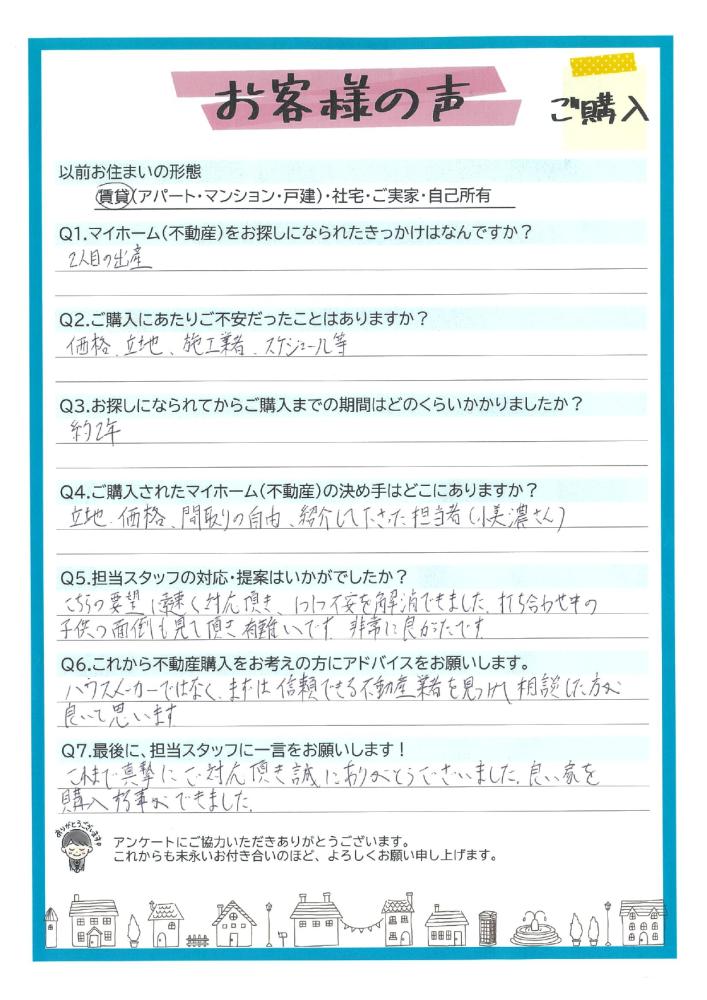 お客様の声
ご購入
以前お住まいの形態
賃貸(アパート・マンション・戸建)・社宅・ご実家・自己所有
Q1.マイホーム(不動産)をお探しになられたきっかけはなんですか?
2人目の出産
Q2.ご購入にあたりご不安だったことはありますか?
価格、立地、施工業者、スケジュール等
Q3.お探しになられてからご購入までの期間はどのくらいかかりましたか?
約2年
Q4.ご購入されたマイホーム(不動産)の決め手はどこにありますか?
立地、価格、間取りの自由、紹介して下さった担当者(小美濃さん)
Q5.担当スタッフの対応・提案はいかがでしたか?
こちらの要望に素速く対応頂き、1つ1つ不安を解消できました。打ち合わせ中の
子供の面倒も見て頂き有難いです。非常に良かったです。
Q6.これから不動産購入をお考えの方にアドバイスをお願いします。
ハウスメーカーではなく、まずは信頼できる不動産業者を見つけて相談した方が
良いと思います
Q7.最後に、担当スタッフに一言をお願いします!
これまで真摯にご対応頂き誠にありがとうございました。良い家を
購入する事ができました。
ありがとうございます
アンケートにご協力いただきありがとうございます。
これからも末永いお付き合いのほど、よろしくお願い申し上げます。